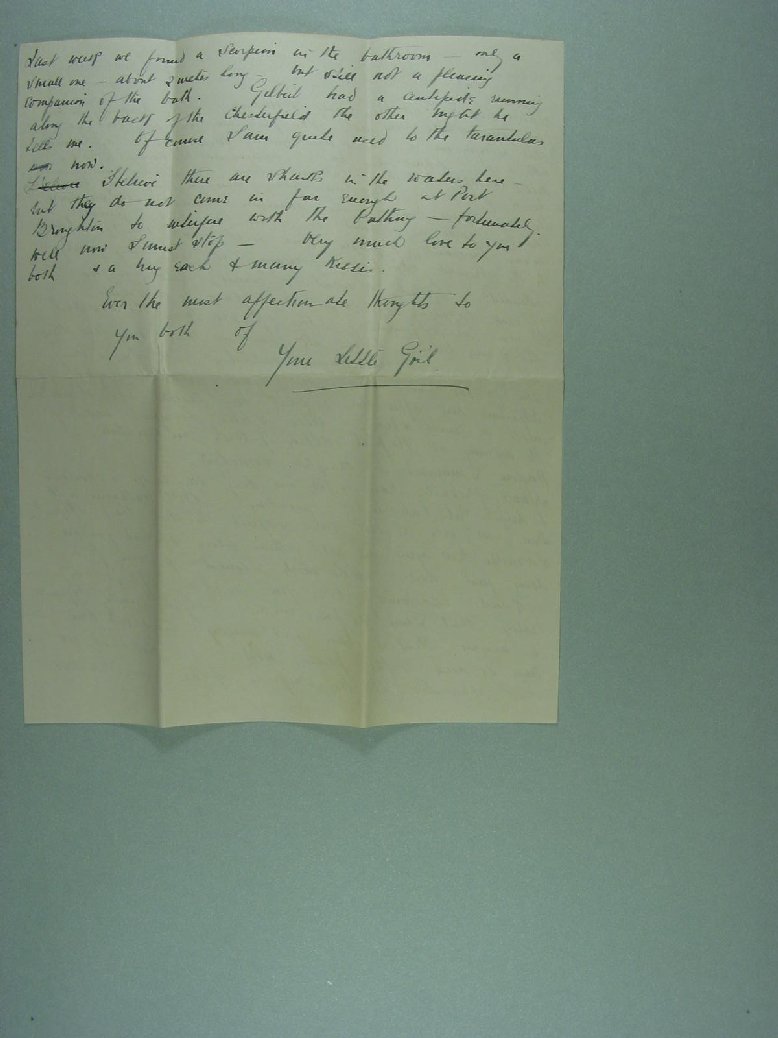 Last week we found a Scorpion in the bathroom – only a
small one – about 2 inches long but still not a pleasing
companion of the bath. Gilbert had a centipede running
along the back of the Chesterfield the other night he
tells me. Of course I am quite used to the tarantulas
now.
I believe there are sharks in the waters here –
but they do not come in far enough at Port
Broughton to interfere with the bathing – fortunately.
Well now I must stop – Very much love to you
both & a hug each & many kisses.
Ever the most affectionate thoughts to
you both of
Your Little Girl